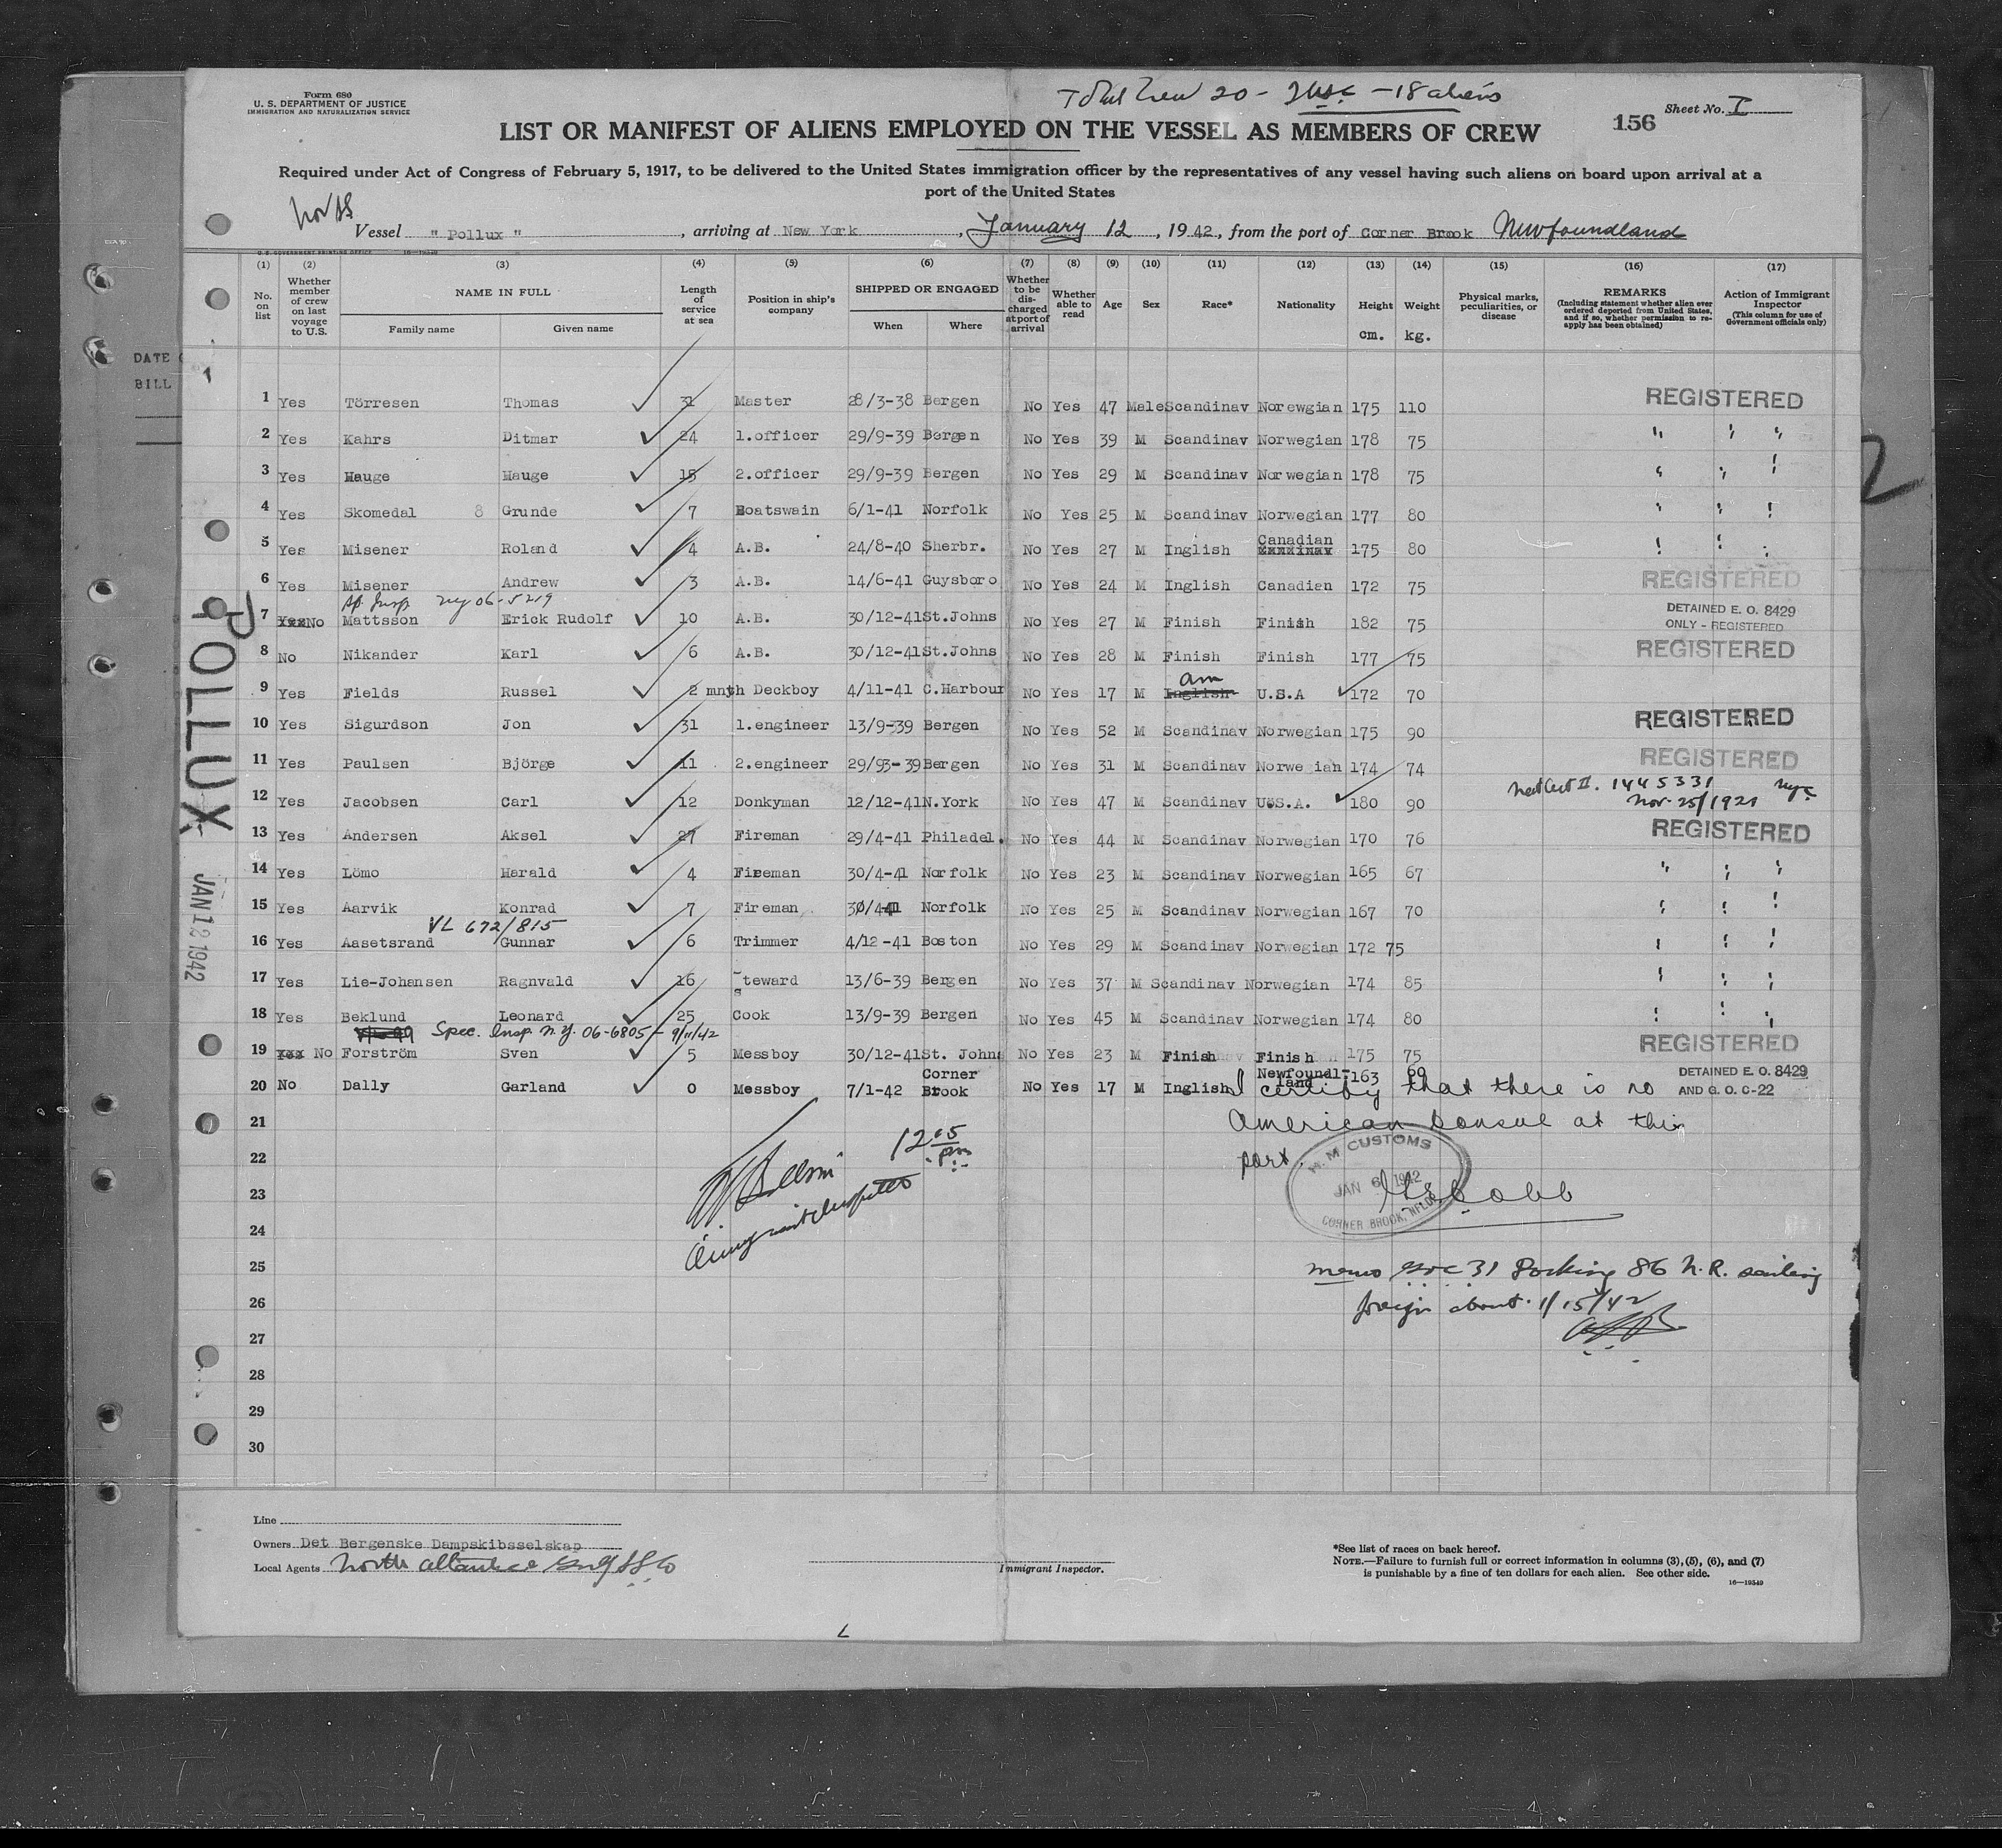 Form 680
U. S. DEPARTMENT OF JUSTICE
IMMIGRATION AND NATURALIZATION SERVICE
Total Crew 20 - 2 usc - 18 aliens
156
Sheet No. I
LIST OR MANIFEST OF ALIENS EMPLOYED ON THE VESSEL AS MEMBERS OF CREW
Required under Act of Congress of February 5, 1917, to be delivered to the United States immigration officer by the representatives of any vessel having such aliens on board upon arrival at a
port of the United States
Vessel " Pollux ", arriving at New York, January 12, 1942, from the port of Corner Brook Newfoundland
U. S. GOVERNMENT PRINTING OFFICE 16—19549
(1) (2) (3) (4) (5) (6) (7) (8) (9) (10) (11) (12) (13) (14) (15) (16) (17)
No. on list
Whether member of crew on last voyage to U.S.
NAME IN FULL
Family name
Given name
Length of service at sea
Position in ship's company
SHIPPED OR ENGAGED
When
Where
Whether to be discharged at port of arrival
Whether able to read
Age
Sex
Race*
Nationality
Height cm.
Weight kg.
Physical marks, peculiarities, or disease
REMARKS
(Including statement whether alien ever ordered deported from United States, and if so, whether permission to re-apply has been obtained)
Action of Immigrant Inspector
(This column for use of Government officials only)
DATE
BILL
1 Yes Törresen Thomas 31 Master 28/3-38 Bergen No Yes 47 Male Scandinav Norewgian 175 110 REGISTERED
2 Yes Kahrs Ditmar 24 1.officer 29/9-39 Bergen No Yes 39 M Scandinav Norwegian 178 75 " " "
3 Yes Hauge Hauge 15 2.officer 29/9-39 Bergen No Yes 29 M Scandinav Norwegian 178 75 " " "
4 Yes Skomedal 8 Grunde 7 Boatswain 6/1-41 Norfolk No Yes 25 M Scandinav Norwegian 177 80 " " "
5 Yes Misener Roland 4 A.B. 24/8-40 Sherbr. No Yes 27 M Inglish Canadian 175 80 " " "
6 Yes Misener Andrew 3 A.B. 14/6-41 Guysboro No Yes 24 M Inglish Canadian 172 75 REGISTERED
Sp. Insp. ny 06-5219
7 No Mattsson Erick Rudolf 10 A.B. 30/12-41 St.Johns No Yes 27 M Finish Finish 182 75 DETAINED E. O. 8429 ONLY - REGISTERED
8 No Nikander Karl 6 A.B. 30/12-41 St.Johns No Yes 28 M Finish Finish 177 75 REGISTERED
9 Yes Fields Russel 2 mnth Deckboy 4/11-41 C.Harbour No Yes 17 M Inglish am U.S.A 172 70
10 Yes Sigurdson Jon 31 1.engineer 13/9-39 Bergen No Yes 52 M Scandinav Norwegian 175 90 REGISTERED
11 Yes Paulsen Björge 11 2.engineer 29/93-39 Bergen No Yes 31 M Scandinav Norwe ian 174 74 REGISTERED
12 Yes Jacobsen Carl 12 Donkyman 12/12-41 N.York No Yes 47 M Scandinav U.S.A. 180 90 1445331 nyc Nov. 25/1921
13 Yes Andersen Aksel 27 Fireman 29/4-41 Philadel. No Yes 44 M Scandinav Norwegian 170 76 REGISTERED
14 Yes Lömo Harald 4 Fireman 30/4-41 Norfolk No Yes 23 M Scandinav Norwegian 165 67 " " "
15 Yes Aarvik Konrad 7 Fireman 30/4-41 Norfolk No Yes 25 M Scandinav Norwegian 167 70 " " "
VL 672/815
16 Yes Aasetsrand Gunnar 6 Trimmer 4/12-41 Boston No Yes 29 M Scandinav Norwegian 172 75 " " "
17 Yes Lie-Johansen Ragnvald 16 steward 13/6-39 Bergen No Yes 37 M Scandinav Norwegian 174 85 " " "
18 Yes Beklund Leonard 25 Cook 13/9-39 Bergen No Yes 45 M Scandinav Norwegian 174 80 " " "
Spec. Insp. N.Y. 06-6805 - 9/11/42
19 No Forström Sven 5 Messboy 30/12-41 St. Johns No Yes 23 M Finish Finish 175 75 REGISTERED
20 No Dally Garland 0 Messboy 7/1-42 Corner Brook No Yes 17 M Inglish Newfoundl-land 163 60 DETAINED E. O. 8429 AND G. O. C-22
I certify that there is no
American Consul at this
port.
H. M CUSTOMS
JAN 6 1942
CORNER BROOK, NFLD.
12 15 pm
21
22
23
24
25
26
27
28
29
30
memo 31 Docking 86 N.R. sailing
foreign about 1/15/42
POLLUX
JAN 12 1942
2
Line
Owners Det Bergenske Dampskibsselskap
Local Agents North Atlantic & Gulf SS Co
Immigrant Inspector.
*See list of races on back hereof.
NOTE.—Failure to furnish full or correct information in columns (3), (5), (6), and (7)
is punishable by a fine of ten dollars for each alien. See other side.
16—19549